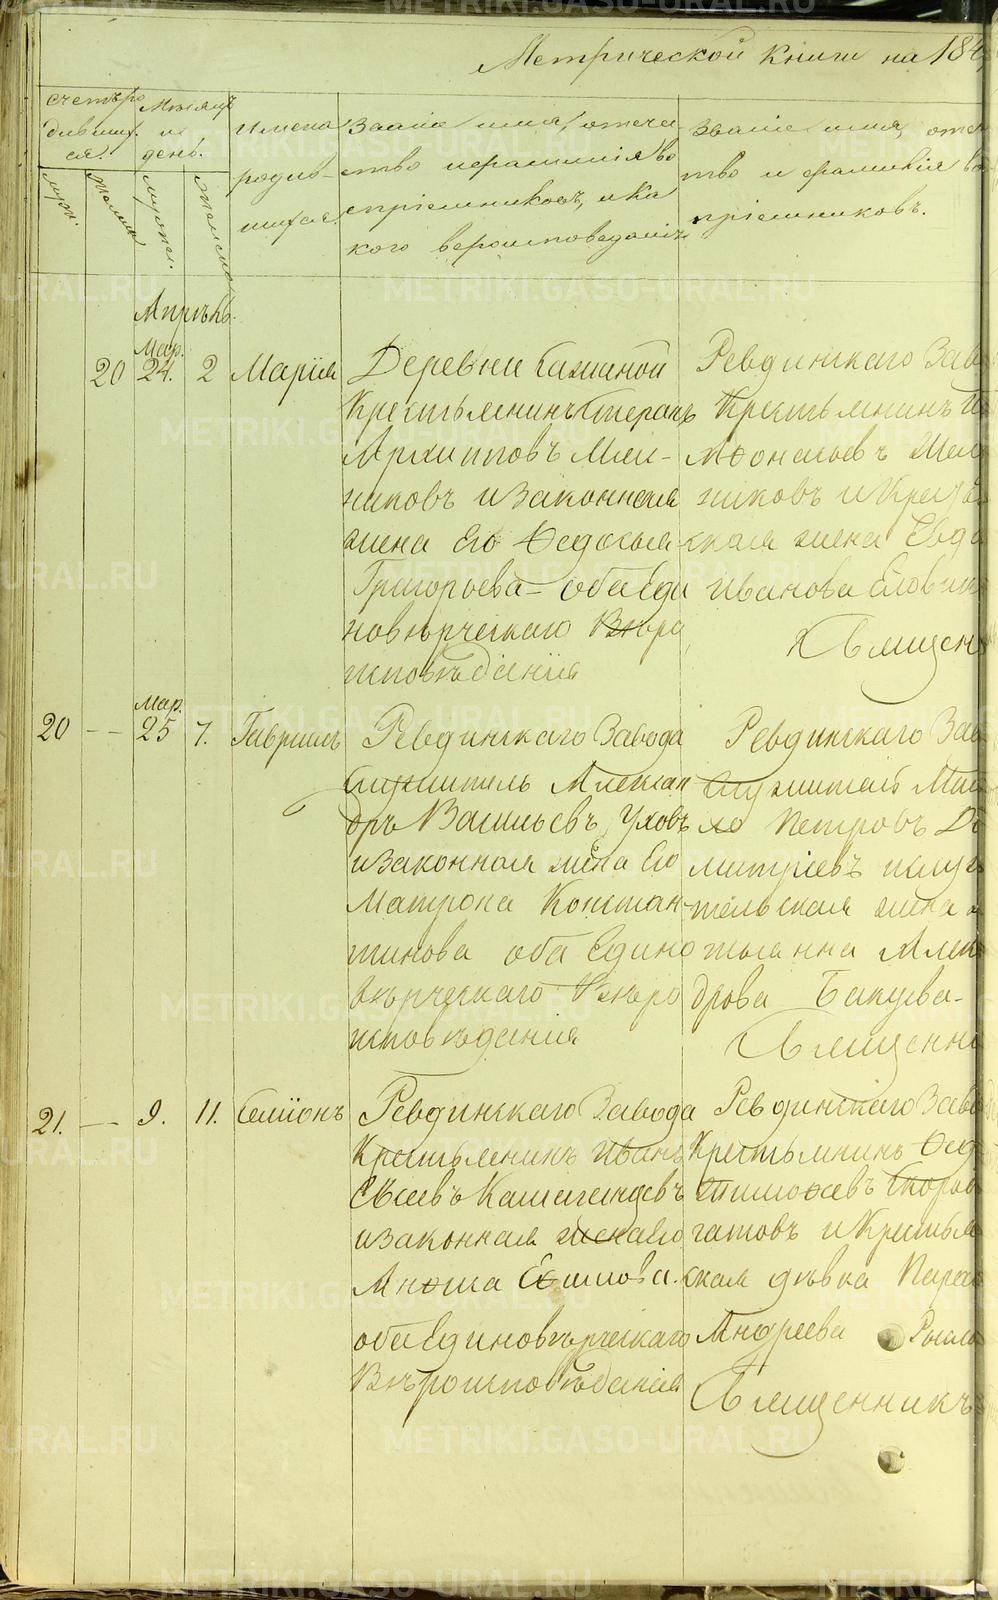 Метрической Книги на 184
счетъ ро
дивших
ся.
муж.
женск
Мѣсяцъ
и
день.
имена
родив-
шихся
Звание имя, отече
ство и фамилия во
спріемниковъ, и ка
кого вероисповеданія
Звание имя, отеч
тво и фамилія во
пріемниковъ.
Апрѣль.
Мар.
20 24. 2 Марія
Деревни Казенной
Крестьянинъ Стефанъ
Архиповъ Мел-
никовъ и законная
жена Его Федосья
Григорьева - оба Еди
новѣрческаго Вѣро
исповѣданія
Ревдинскаго Заво
Крестьянинъ
Афонасьевъ Мел
никовъ и Кресть
ская жена Евдо
Иванова
Священ
Мар.
20 -- 25 7. Гавриилъ
Ревдинскаго Завода
служитель Алексан
дръ Васильевъ Уховъ
и законная жена Его
Матрона Констан-
тинова оба Едино
вѣрческаго Вѣро
исповѣданія
Ревдинскаго Зав
служитель Миха
ло Петровъ Ди
митріевъ и служ
тельская жена
Татьянна Алек
дрова Бакуева-
Священни
21. -- 9. 11. Семіонъ
Ревдинскаго Завода
Крестьянинъ Иванъ
Евсеевъ
и законная жена Его
Анфиса Ефимова.
оба Единовѣрческаго
Вѣроисповѣданія
Ревдинскаго Заво
Крестьянинъ Фед
Тимофеевъ
гатовъ и Крестья
ская дѣвка Парас
Андреева
Священникъ